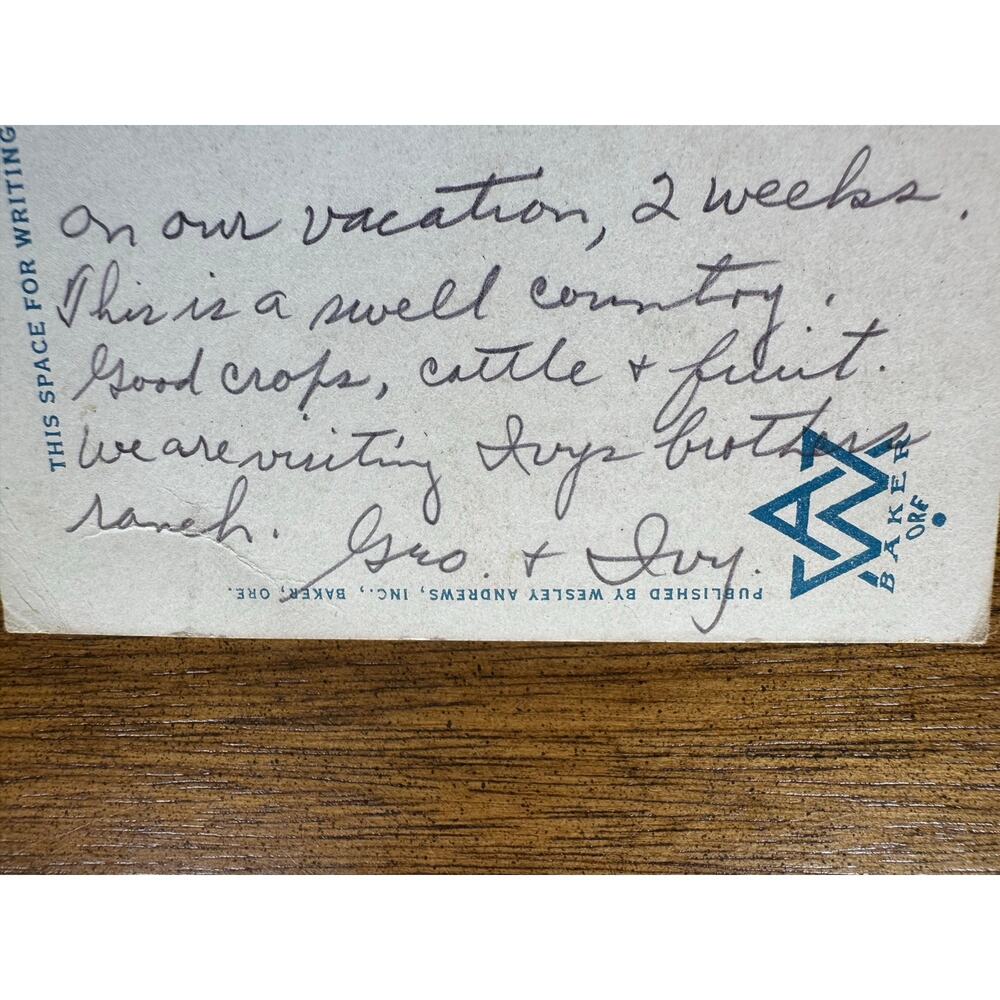 THIS SPACE FOR WRITING
on our vacation, 2 weeks.
This is a swell country.
Good crops, cattle + fruit.
We are visiting Ivys brothers
ranch.
Geo. + Ivy.
PUBLISHED BY WESLEY ANDREWS, INC., BAKER, ORE.
WA
BAKER
ORE